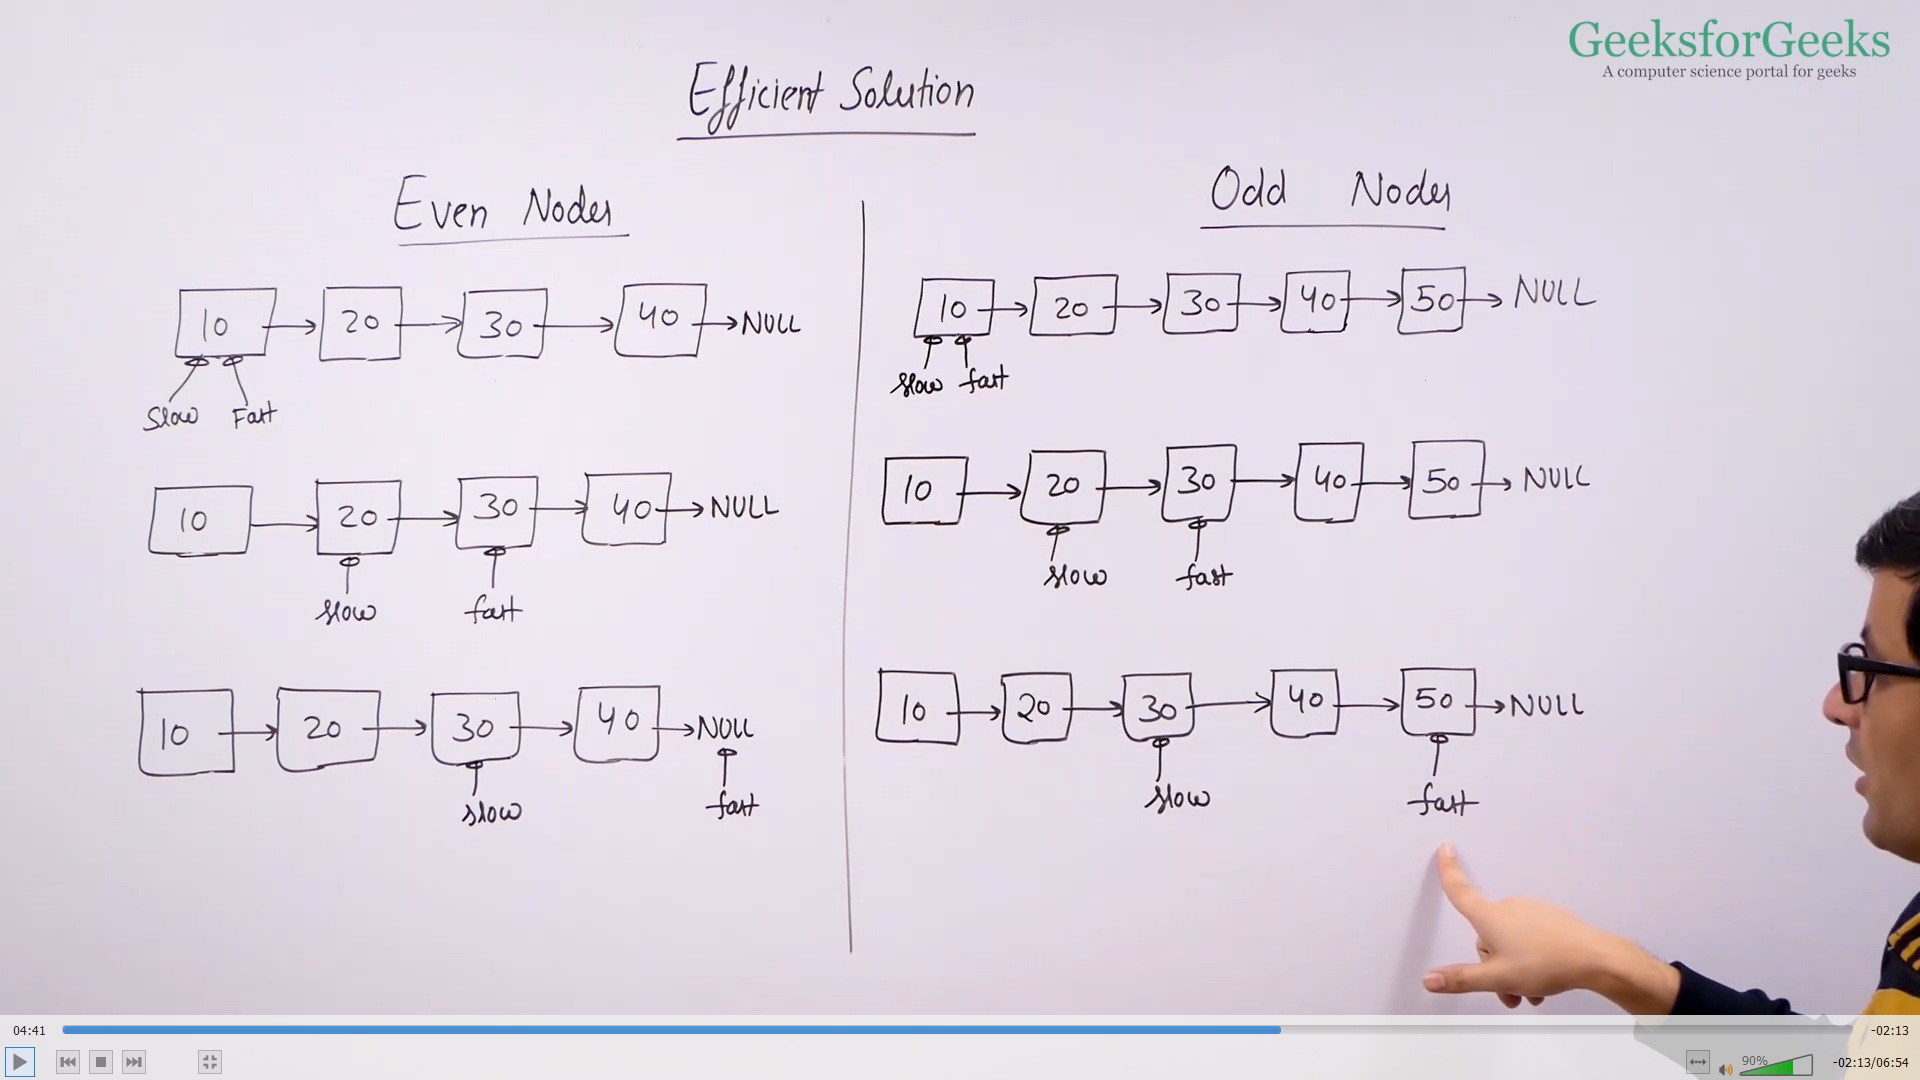 GeeksforGeeks
A computer science portal for geeks
Efficient Solution
Even Nodes
10 20 30 40 NULL
Slow Fast
10 20 30 40 NULL
slow fast
10 20 30 40 NULL
slow fast
Odd Nodes
10 20 30 40 50 NULL
slow fast
10 20 30 40 50 NULL
slow fast
10 20 30 40 50 NULL
slow fast
04:41 -02:13
90% -02:13/06:54